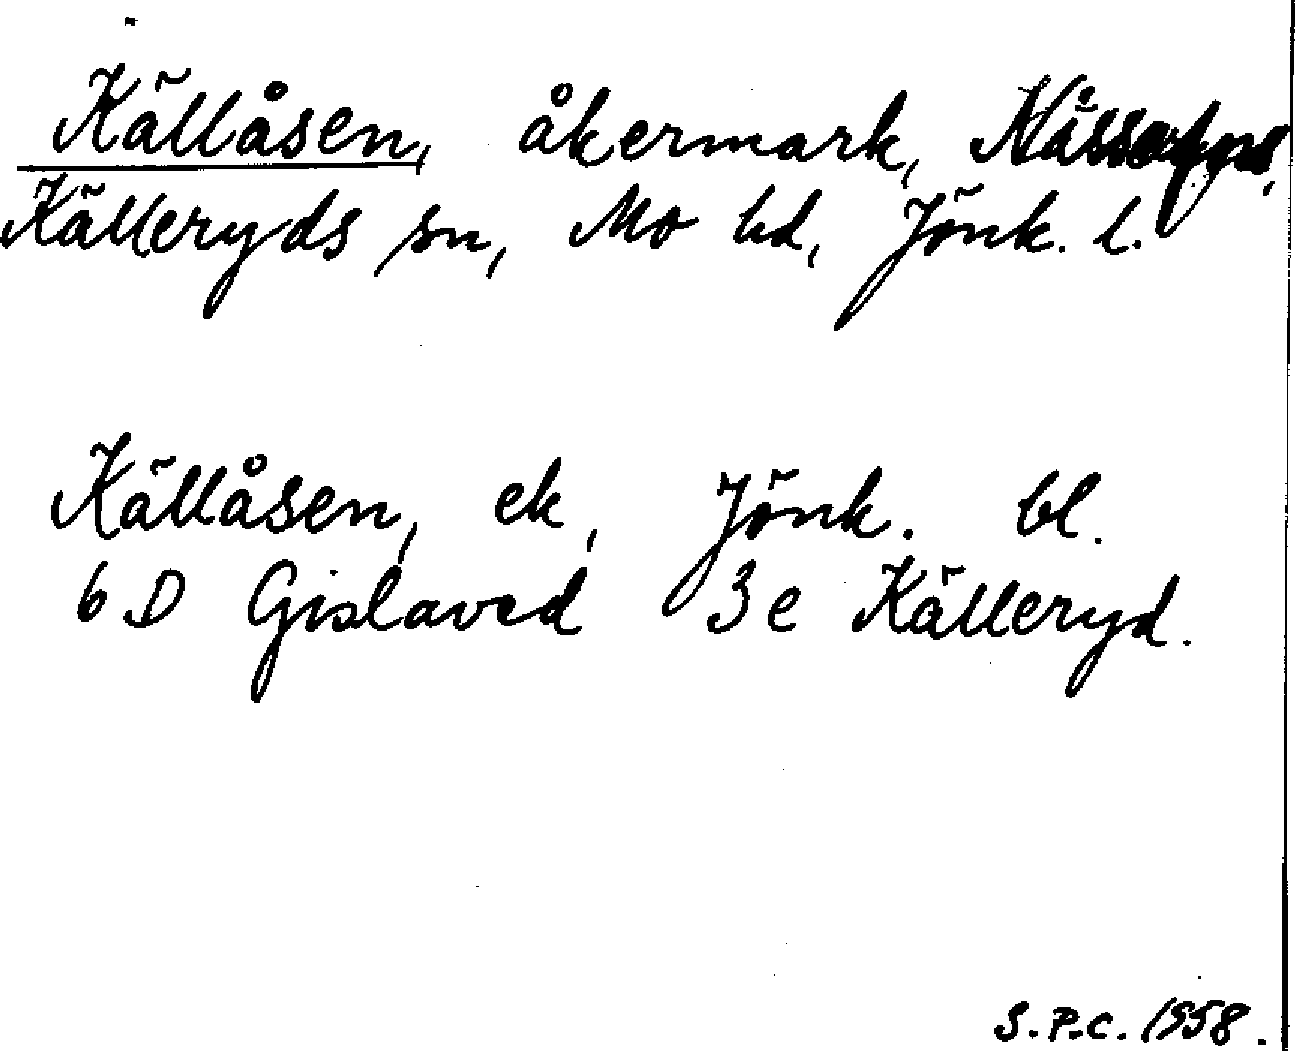 Källåsen, åkermark,
Källeryds sn, Mo hd, Jönk. l.
Källåsen, ek, Jönk. bl.
6 D Gislaved 3 e Källeryd.
S.P.C. 1958.